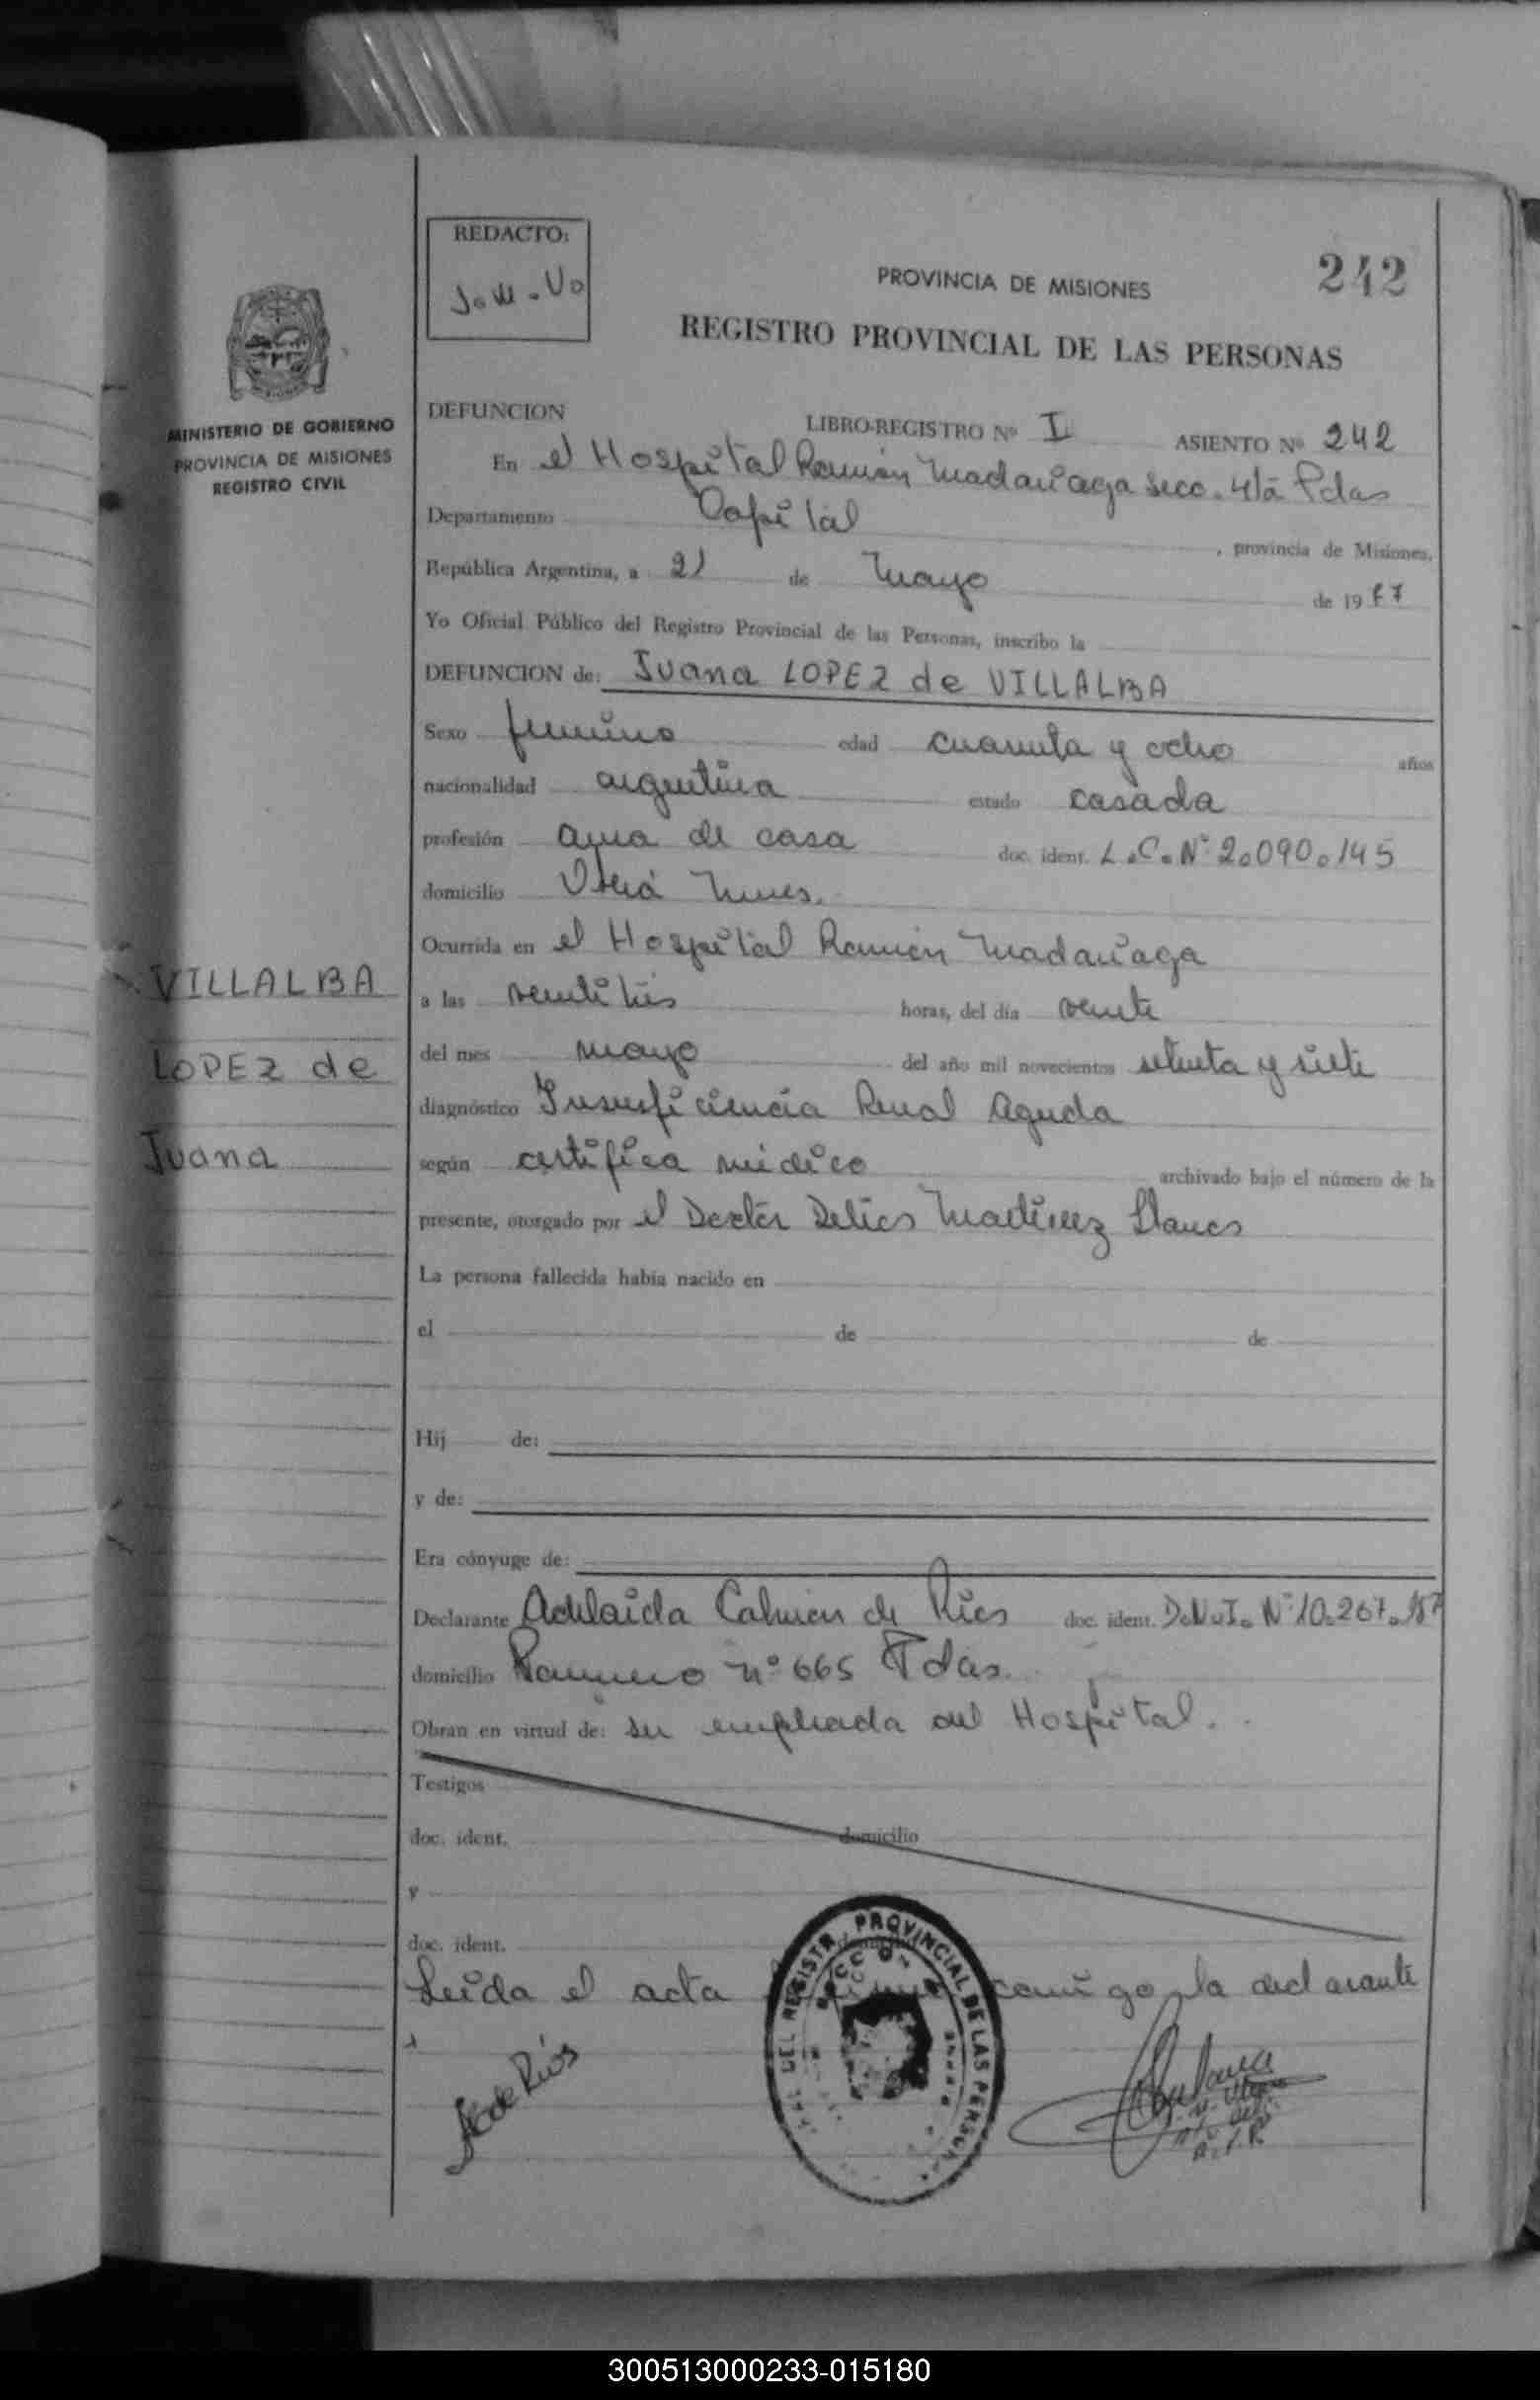 REDACTO:
J.M.V.
242
PROVINCIA DE MISIONES
REGISTRO PROVINCIAL DE LAS PERSONAS
MINISTERIO DE GOBIERNO
PROVINCIA DE MISIONES
REGISTRO CIVIL
DEFUNCION LIBRO-REGISTRO Nº I ASIENTO Nº 242
En el Hospital Ramón Madariaga secc. 4ta Pdas
Departamento Capital, provincia de Misiones,
República Argentina, a 21 de Mayo de 1977
Yo Oficial Público del Registro Provincial de las Personas, inscribo la
DEFUNCION de: Juana LOPEZ de VILLALBA
Sexo femenino edad cuarenta y ocho años
nacionalidad argentina estado casada
profesión ama de casa doc. ident. L.C. Nº 2.090.145
domicilio
Ocurrida en el Hospital Ramón Madariaga
VILLALBA
LOPEZ de
Juana
a las veintitrés horas, del día veinte
del mes mayo del año mil novecientos setenta y siete
diagnóstico Insuficiencia Renal Aguda
según certifica médico archivado bajo el número de la
presente, otorgado por el Doctor Delios Martinez Llanes
La persona fallecida había nacido en
el de de
Hij de:
y de:
Era cónyuge de:
Declarante Adelaida de Ríos doc. ident. D.N.I. Nº 10.267.
domicilio nº 665 Pdas.
Obran en virtud de: su empleada del Hospital.
Testigos
doc. ident. domicilio
y
doc. ident.
Leída el acta conmigo la declarante
DEL REGISTR. PROVINCIAL DE LAS PERSON
A de Ríos
300513000233-015180